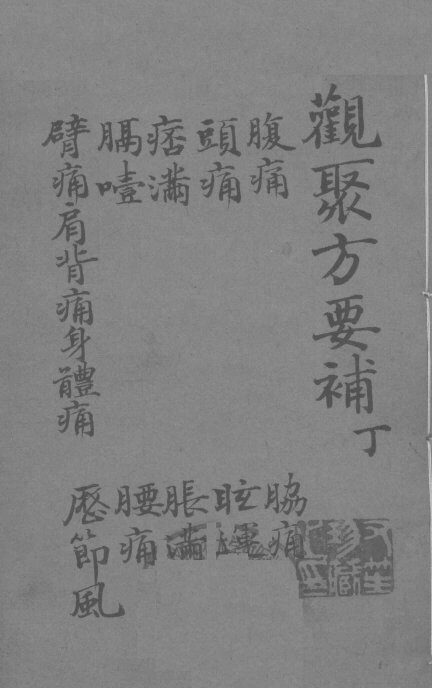 觀聚方要補 丁
腹痛 脇痛
頭痛 眩運
痞滿 脹滿
膈噎 腰痛
臂痛肩背痛身體痛 歷節風